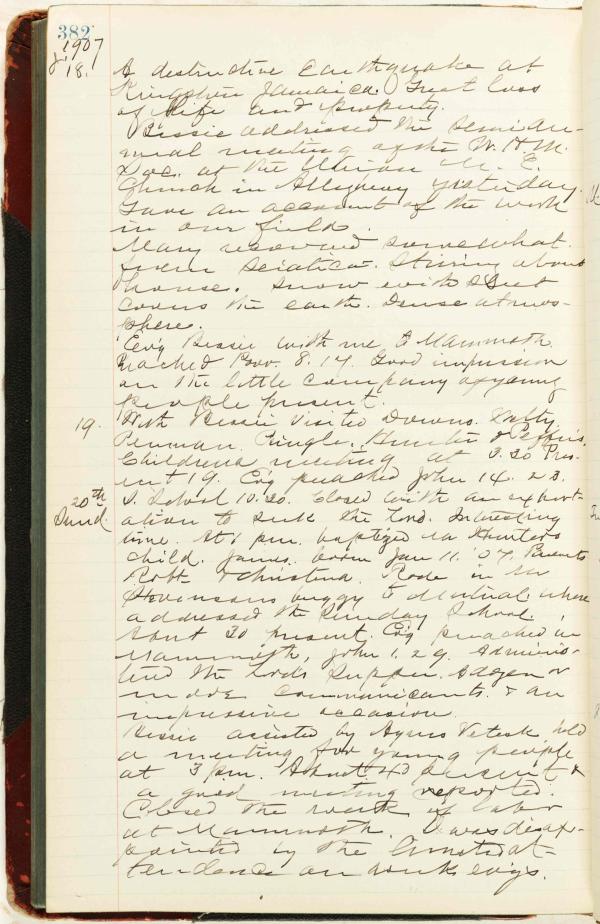 382
1907
J. 18.
A destructive earthquake at
Kingston Jamaica. Great loss
of life and property.
Bessie addressed the Semi An-
nual meeting of the W. H. M.
Soc. at the Union M. E.
Church in Allegheny yesterday.
Gave an account of the work
in our field.
Mary recovered somewhat
from Sciatica. Stirring about
house. Snow with Sleet
covers the earth. Dense atmos-
phere.
Ev'g Bessie with me to Mammoth
Preached Prov. 8.17. Good impression
on the little company of young
people present.
19. With Bessie visited Downs.
Penman. Pringle. Hunter &
Childrens meeting at 2.30 Pres-
ent 19. Ev'g preached John 14. 23.
20th Sund. S. School 10.30. Closed with an exhort-
ation to seek the Lord. Interesting
time. At 1 pm. baptized a Hunters
child. James. born Jan 11. '07. Parents
Robt & Christena. Rode in Mr
Stevensons buggy to Mutual where
addressed the Sunday School.
About 30 present. Ev'g preached in
Mammoth, John 1. 29. Adminis-
tered the Lords Supper. A dozen or
more communicants. & an
impressive occasion.
Bessie assisted by Agnes held
a meeting for young people
at 3 pm. About 40 present &
a good meeting reported.
Closed the week of labor
at Mammoth. I was disap-
pointed by the limited at-
tendance on week ev'gs.